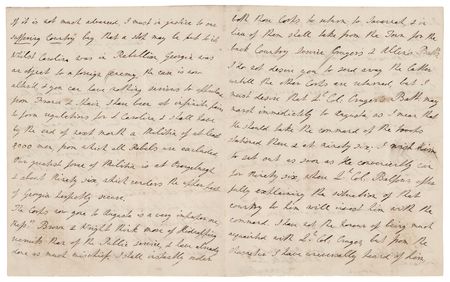 If it is not much advanced, I must in justice to our
suffering Country beg that a stop may be put to it.
Whilst Carolina was in Rebellion Georgia was
an object to a foreign Enemy, the case is now
altered & you can have nothing serious to apprehend
from France & Spain. I have been at infinite pains
to form regulations for S. Carolina, & shall have
by the end of next month a Militia of at least
3000 men, from which all Rebels are excluded.
Our greatest force of Militia is at Orangeburgh
& about Ninety six, which renders the
of Georgia perfectly secure.
The Corps now gone to Augusta is a very
Brown & think more of
than of the Public service, & have already
done as much mischief. I shall instantly order
both those Corps to return to Savannah, & in
lieu of them shall take from the Town for the
back Country Cruger's & Allen's Batt.
I do not desire you to send away the latter
until the other Corps are returned, but I
must desire that Lt Col. Cruger's Batt. may
march immediately to Augusta, as I mean that
he should take the command of the
stationed there & at ninety six; I wish him
to set out as soon as he conveniently can
for Ninety six where Lt Col. Balfour, after
fully explaining the situation of that
country to him will invest him with the
command. I have not the honour of being much
acquainted with Lt Col. Cruger, but from the
character I have universally heard of him,